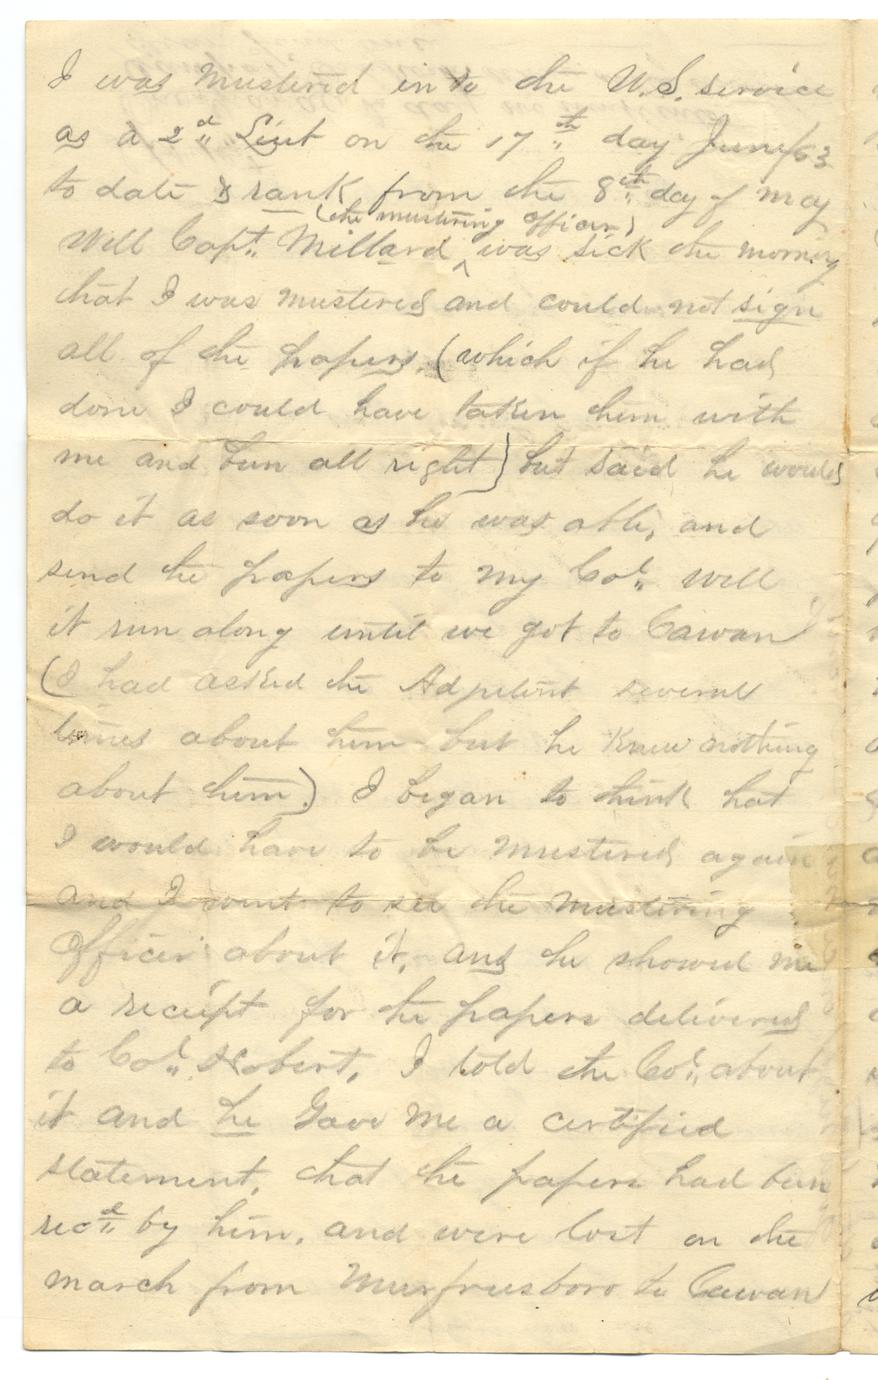 I was mustered in to the U.S. service
as a 2d Lieut on the 17th day June/63
to date & rank from the 8th day of may
(the mustering officer)
Well Capt. Millard ^ was sick the morning
that I was mustered and could not sign
all of the papers, (which if he had
done I could have taken them with
me and bun all right) but said he would
do it as soon as he was able, and
send the papers to my Col. Well
it run along until we got to Cawan
(I had asked the Adjutent several
times about him but he knew nothing
about him.) I began to think that
I would have to be mustered again
and I went to see the mustering
Officer about it, and he showed me
a receipt for the papers delivered
to Col. Hobert, I told the Col. about
it and he Gave me a certified
statement, that the papers had bun
recd by him, and were lost on the
march from Murfreesboro to Cawan